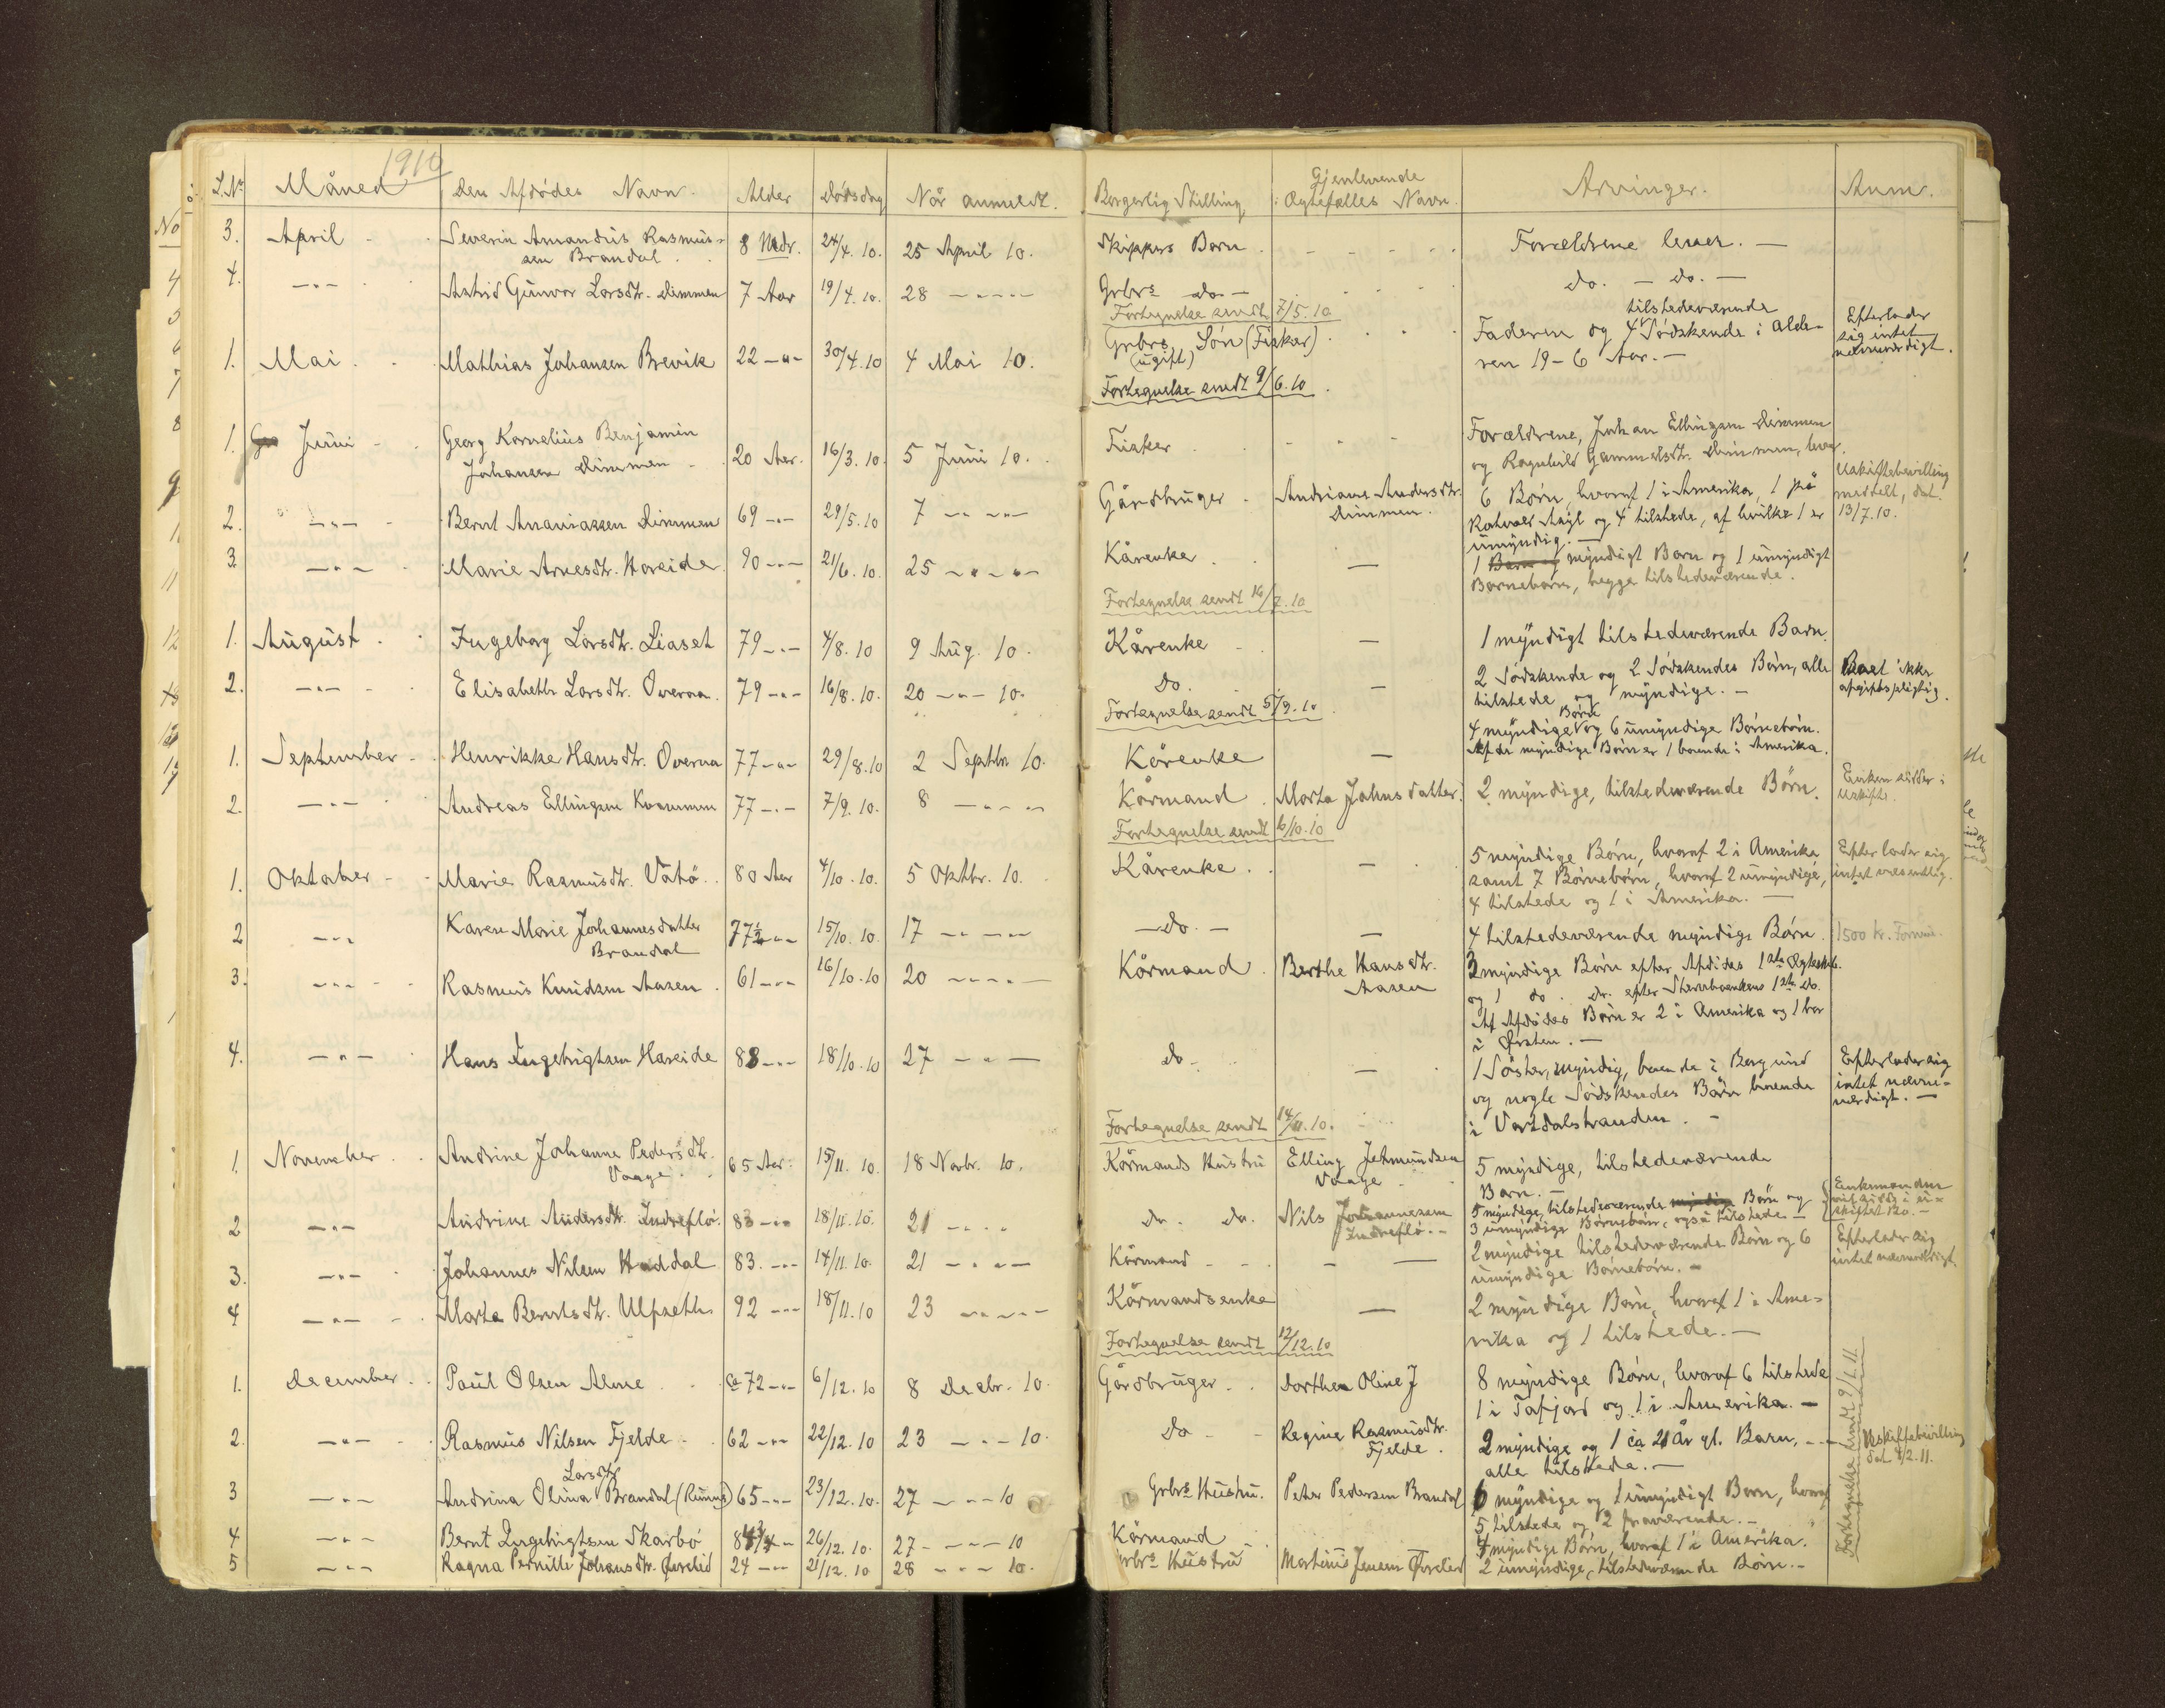 1910
L.Nr. Måned Den Afdødes Navn. Alder Dødsdag Når anmeldt. Borgerlig Stilling Gjenlevende Ægtefælles Navn. Arvinger. Anm.
3. April Severin Amandus Rasmus-
sen Brandal. 8 Mdr. 24/4. 10. 25 April 10. Skippers Barn - - - Forældrene lever. —
4. —"— Astrid Gunvor Larsdtr. Dimmen 7 Aar 19/4. 10. 28 —"—"— Grbrs do — - - - do. — do. —
Fortegnelse sendt 7/5. 10
1. Mai Mathias Johansen Brevik 22 —"— 30/4. 10 4 Mai 10. Grbrs. Søn (Fisker).
(ugift)
Faderen og 4 tilstedeværende Sødskende i Alde-
ren 19 – 6 Aar. —
Efterlader
sig intet
nævneværdigt.
Fortegnelse sendt 9/6. 10
1. Juni Georg Kornelius Benjamin
Johansen Dimmen 20 Aar. 16/3. 10. 5 Juni 10. Fisker - - -
Forældrene, Johan Ellingsen Dimmen
og Ragnhild Gammelsdtr. Dimmen, lever.
2. —"— Bernt Ananiassen Dimmen 69 —"— 29/5. 10 7 —"—"— Gårdbruger Andriane Andersdtr.
Dimmen.
6 Børn, hvoraf 1 i Amerika, 1 på
og 4 tilstede, af hvilke 1 er
umyndig. —
Uskiftebevilling
meddelt, dat.
13/7. 10.
3. —"— Marie Arnesdtr. Hareide 90 —"— 21/6. 10. 25 —"—"— Kårenke —
1 Barn og myndigt Barn og 1 umyndigt
Barnebarn, begge tilstedeværende.
Fortegnelse sendt 16/7. 10
1. August Ingeborg Larsdtr. Liaset 79 —"— 4/8. 10 9 Aug. 10. Kårenke — 1 myndigt tilstedeværende Barn.
2. —"— Elisabeth Larsdtr. Overaa. 79 —"— 16/8. 10. 20 —"— 10. Do. —
2 Sødskende og 2 Sødskendes Børn, alle
tilstede og myndige. —
Boet ikke
afgiftspligtig.
Fortegnelse sendt 5/9. 10
1. September Henrikke Hansdtr. Overaa 77 —"— 29/8. 10 2 Septbr. 10. Kårenke —
4 myndige Børn og 6 umyndige Børnebørn.
Af de myndige Børn er 1 boende i Amerika.
2. —"— Andreas Ellingsen Kvammen 77 —"— 7/9. 10. 8 —"—"— Kårmand Marta Johnsdatter. 2 myndige, tilstedeværende Børn.
Enken sidder i
Uskifte.
Fortegnelse sendt 6/10. 10
1. Oktober Marie Rasmusdtr. Vatö 80 Aar 4/10. 10. 5 Oktbr. 10. Kårenke —
5 myndige Børn, hvoraf 2 i Amerika
samt 7 Børnebørn, hvoraf 2 umyndige,
4 tilstede og 1 i Amerika. —
Efterlader sig
intet væsentlig.
2 —"— Karen Marie Johannesdatter
Brandal 77½ —"— 15/10. 10. 17 —"—"— —do.— — 4 tilstedeværende myndige Børn. 1500 kr. Formue.
3. —"— Rasmus Knudsen Aasen 61 —"— 16/10. 10 20 —"—"— Kårmand Berthe Hansdtr.
Aasen
3 myndige Børn efter Afdødes 1ste Ægteskab.
og 1 do. do. efter 1ste do.
Af Afdødes Børn er 2 i Amerika og 1 bor
i Ørsten. —
4. —"— Hans Ingebrigtsen Hareide 88 —"— 18/10. 10 27 —"— do. —
1 Søster, myndig, boende i Borgund
og nogle Sødskendes Børn boende
i Vartdalstranden. —
Efterlader sig
intet nævne-
værdigt. —
Fortegnelse sendt 14/11. 10.
1. November Andrine Johanne Pedersdtr.
Vaage. 65 Aar. 15/11. 10. 18 Novbr. 10. Kårmands Hustru Elling Jetmundsen
Vaage
5 myndige, tilstedeværende
Børn. —
2 —"— Andrine Andersdtr. Indreflø. 83 —"— 18/11. 10. 21 —"— do. do. Nils Johannesen
Indreflø. —
5 myndige, tilstedeværende myndige Børn og
3 umyndige Børnebørn, også tilstede —
Enkemanden
vil sidde i u-
skiftet Bo. —
3. —"— Johannes Nilsen Haddal 83. —"— 14/11. 10. 21 —"—"— Kårmand - - — —
2 myndige tilstedeværende Børn og 6
umyndige Børnebørn. —
Efterlader sig
intet nævneværdigt.
4 —"— Marta Berntsdtr. Ulfseth. 92 —"— 18/11. 10 23 —"—"— Kårmandsenke —
2 myndige Børn, hvoraf 1 i Ame-
rika og 1 tilstede. —
Fortegnelse sendt 12/12. 10
1. December Paul Olsen Alme ca 72 —"— 6/12. 10 8 Decbr. 10. Gårdbruger Dorthea Oline J
8 myndige Børn, hvoraf 6 tilstede
1 i Tafjord og 1 i Amerika. —
2. —"— Rasmus Nilsen Fjelde 62 —"— 22/12. 10 23 —"— 10. do Regine Rasmusdtr.
Fjelde.
2 myndige og 1 ca 21 År gl. Barn,
alle tilstede. —
Uskiftebevilling
dat 4/2. 11.
3 —"— Andrina Olina Larsdtr. Brandal (Runne) 65 —"— 23/12. 10. 27 —"— 10 Grbrs Hustru. Peter Pedersen Brandal
6 myndige og 1 umyndigt Barn, hvoraf
5 tilstede og 2 fraværende. —
4 —"— Bernt Ingebrigtsen Skarbö 84¾ —"— 26/12. 10. 27 —"— 10 Kårmand 4 myndige Børn, hvoraf 1 i Amerika.
5 —"— Ragna Pernille Johansdtr. Øvrelid 24 —"— 21/12. 10 28 —"— 10. Grbrs Hustru Martinus Jensen Øvrelid 2 umyndige, tilstedeværende Børn. —
Fortegnelse sendt 9/1. 11